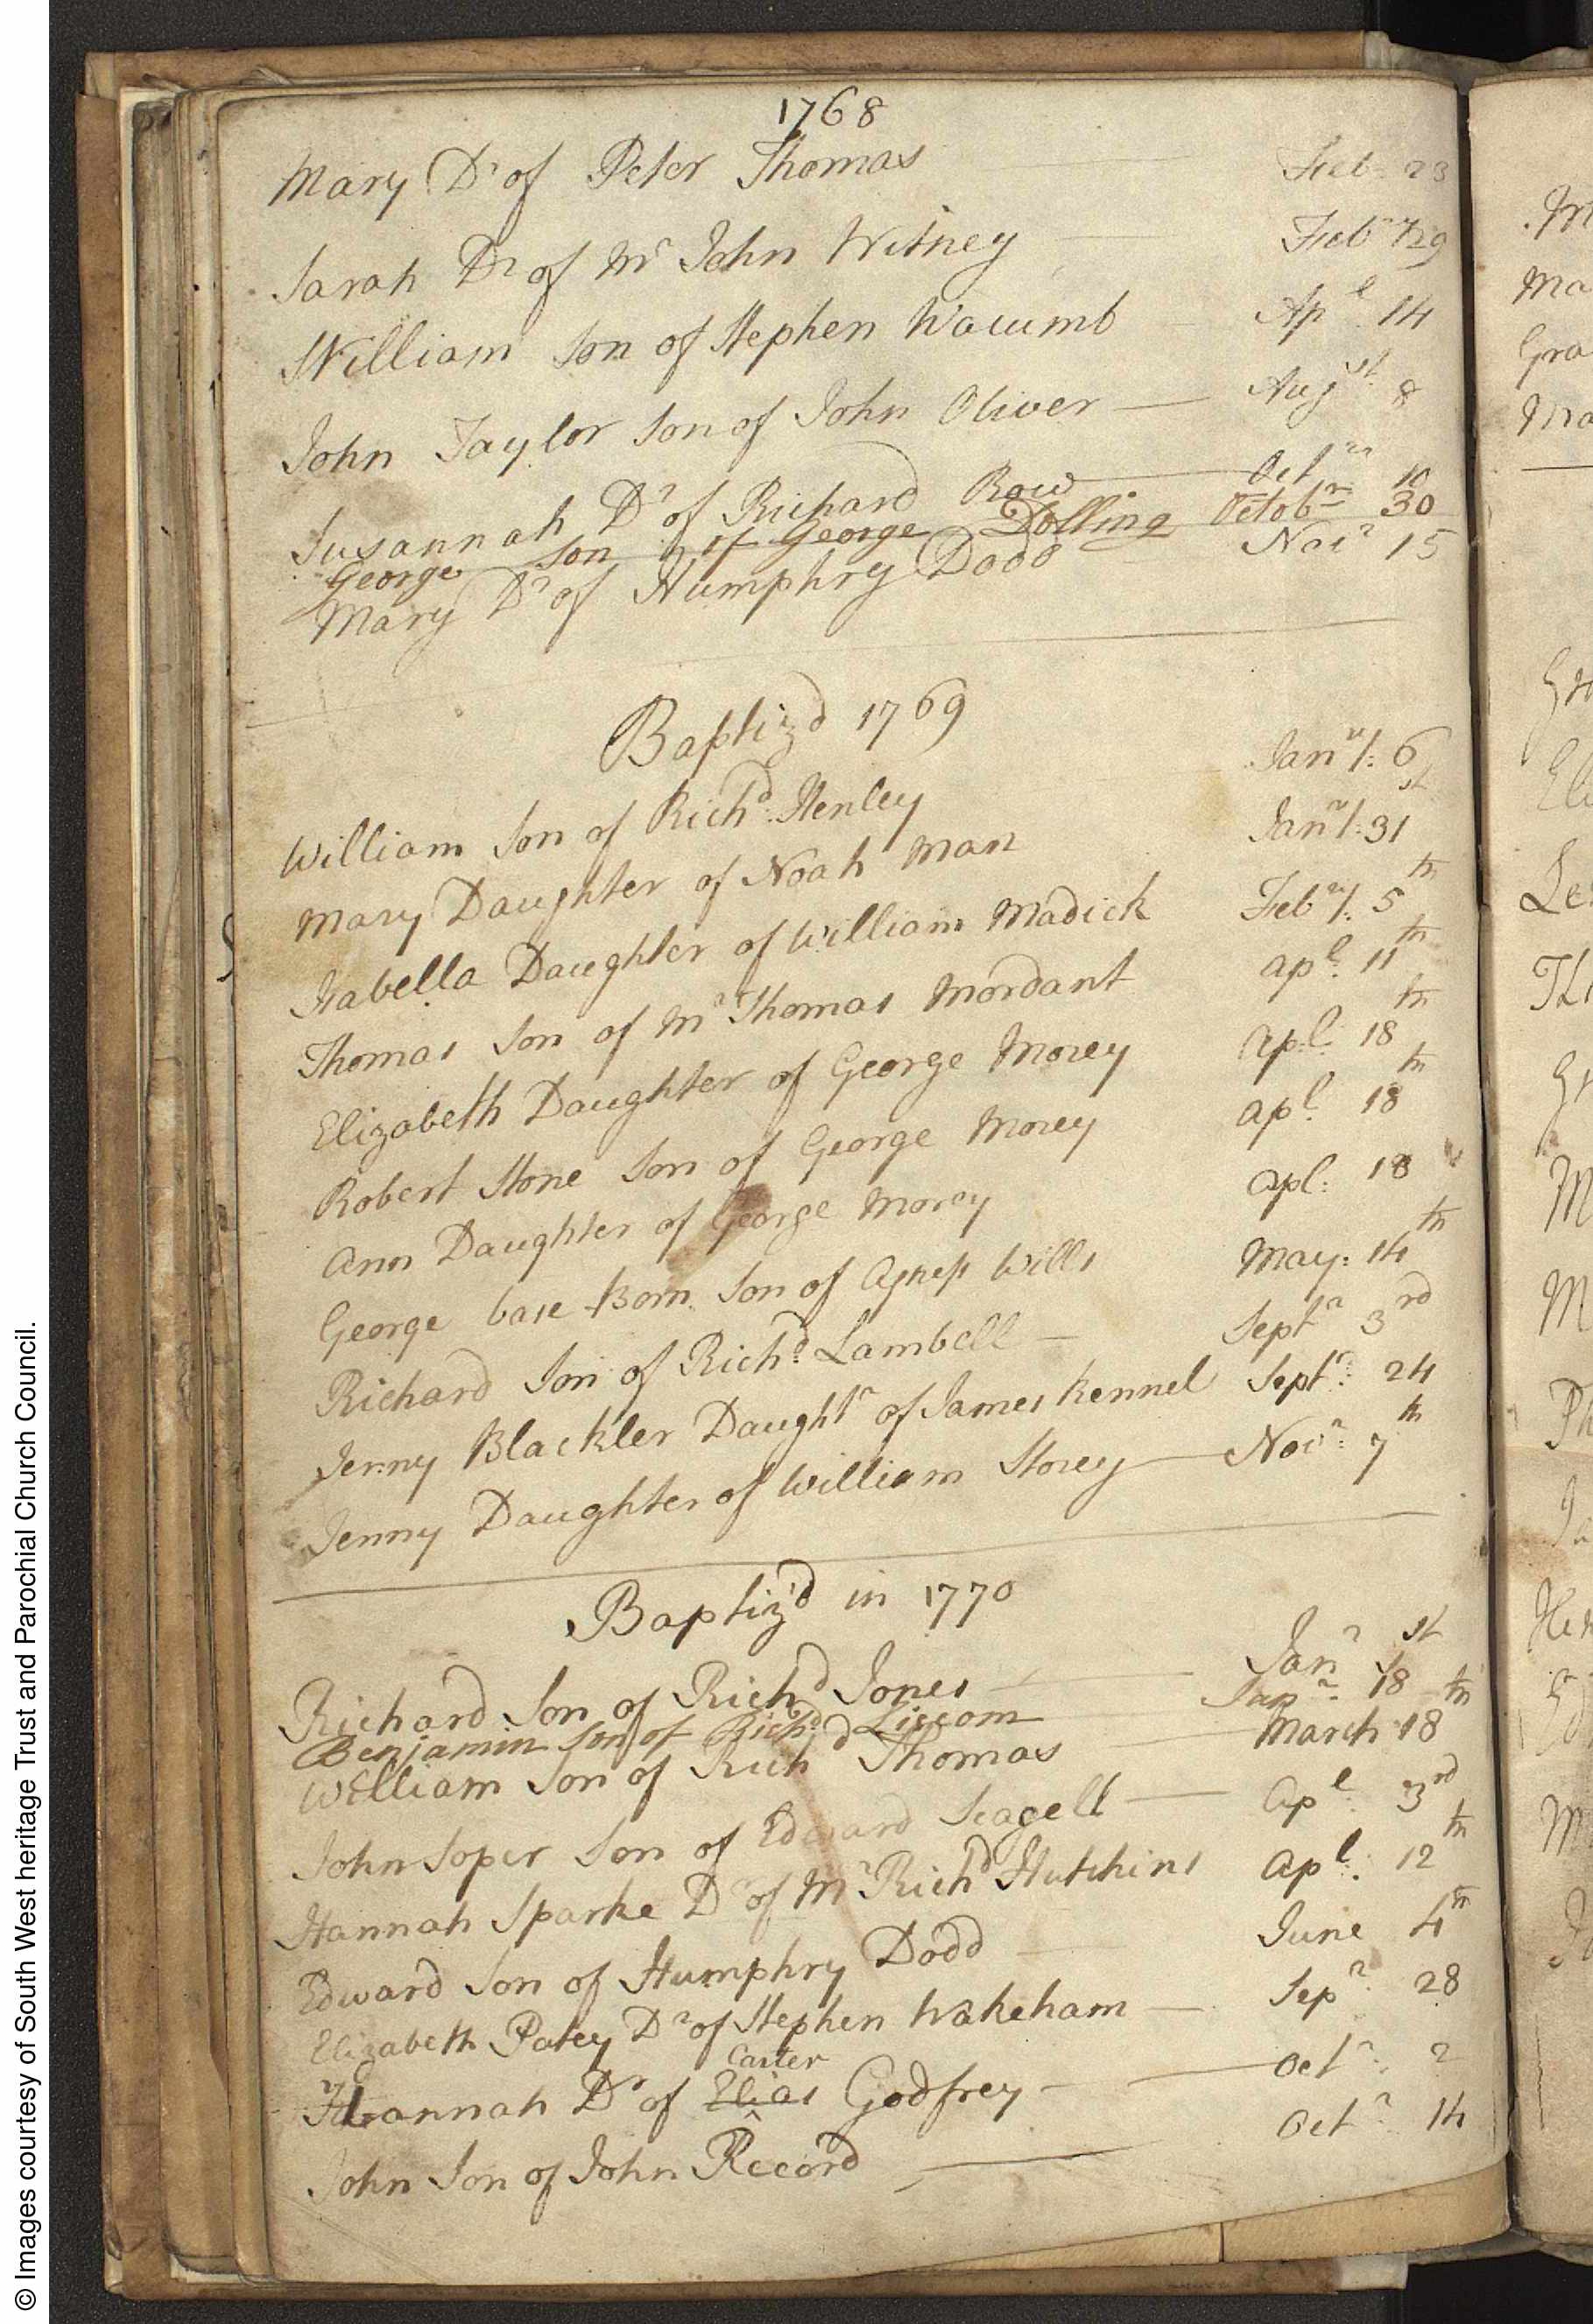 1768
Mary Dr of Peter Thomas Feb: 23
Sarah Dr of Mr John Witney Feb 29
William Son of Stephen Wacumb Apl 14
John Taylor Son of John Oliver — Augst 8
Susannah Dr of Richard Row — Octr 10
George Son of George Dolling Octobr 30
Mary Dr of Humphry Dodd Novr 15
Baptiz'd 1769
William Son of Richd: Henley Janry: 6
Mary Daughter of Noah Man Janry: 31st
Isabella Daughter of William Madick Febry: 5th
Thomas Son of Mr Thomas Mordant apl: 11th
Elizabeth Daughter of George Morey apl: 18th
Robert Stone Son of George Morey apl: 18th
Ann Daughter of George Morey apl: 18
George base Born Son of Agness Wills May: 14th
Richard Son of Richd: Lambell — Septr 3rd
Jenny Blackler Daughtr of James Kennel Septr: 24
Jenny Daughter of William Storey — Novr: 7th
Baptiz'd in 1770
Richard Son of Richd Jones — Janr 1st
Benjamin Son of Richd Liscom Janr: 18
William Son of Richd Thomas — March 18th
John Soper Son of Edward Seagell — Apl: 3rd
Hannah Sparke Dr of Mr Richd Hutchins Apl: 12th
Edward Son of Humphry Dodd — June 4th
Elizabeth Patey Dr of Stephen Wakeham — Sepr: 28
Carter
Hannah Dr of Elias Godfrey — Octr: 2
John Son of John Record — Octr: 14
© Images courtesy of South West heritage Trust and Parochial Church Council.